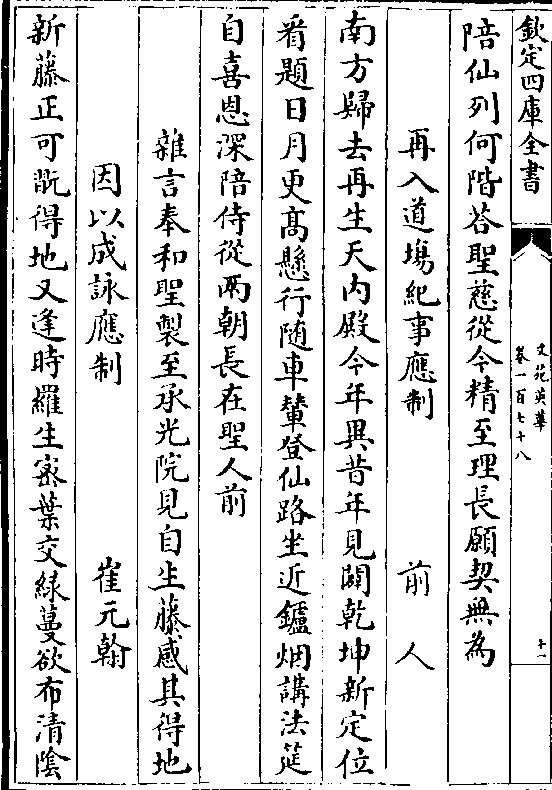 欽定四庫全書
文苑英華
卷一百七十八
十一
陪仙列何階荅聖慈從今精至理長願契無為
再入道塲紀事應制 前人
南方歸去再生天内殿今年異昔年見闢乾坤新定位
看題日月更髙懸行随車輦登仙路坐近鑪烟講法筵
自喜恩深陪侍從兩朝長在聖人前
雜言奉和聖製至承光院見自生藤感其得地
因以成詠應制 崔元翰
新藤正可翫得地又逢時羅生密葉交綠蔓欲布清陰